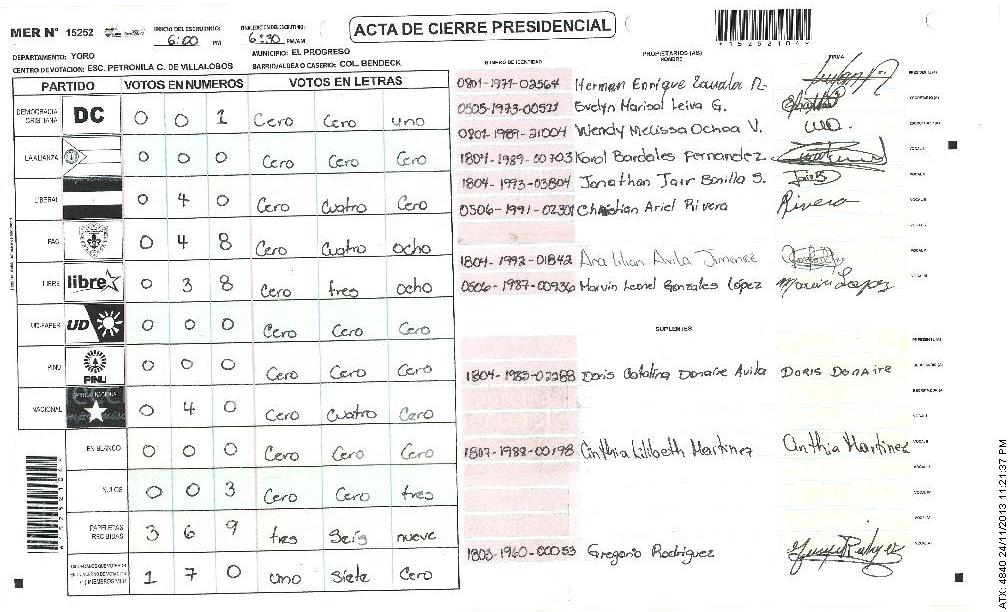 MER Nº 15252
INICIO DEL ESCRUTINIO: 6:00 PM
FINALIZACION DEL ESCRUTINIO: 6:30 PM/AM
ACTA DE CIERRE PRESIDENCIAL
*15252104*
DEPARTAMENTO: YORO
MUNICIPIO: EL PROGRESO
CENTRO DE VOTACION: ESC. PETRONILA C. DE VILLALOBOS
BARRIO/ALDEA O CASERIO: COL. BENDECK
PARTIDO VOTOS EN NUMEROS VOTOS EN LETRAS
DEMOCRACIA CRISTIANA DC 0 0 1 Cero Cero uno
LA ALIANZA 0 0 0 Cero Cero Cero
LIBERAL 0 4 0 Cero Cuatro Cero
PAC 0 4 8 Cero Cuatro ocho
LIBRE libre 0 3 8 Cero tres ocho
UD-FAPER UD 0 0 0 Cero Cero Cero
PINU PINU 0 0 0 Cero Cero Cero
NACIONAL 0 4 0 Cero Cuatro Cero
EN BLANCO 0 0 0 Cero Cero Cero
NULOS 0 0 3 Cero Cero tres
PAPELETAS RECIBIDAS 3 6 9 tres Seis nueve
1 7 0 uno Siete Cero
NUMERO DE IDENTIDAD PROPIETARIOS (AS) NOMBRE FIRMA
0801-1971-02564 Herman Enrique R. PRESIDENTE(A)
0505-1973-00521 Evelyn Marisol Leiva G. SECRETARIO(A)
0801-1989-21004 Wendy Melissa Ochoa V. ESCRUTADOR(A)
1804-1989-00703 Karol Bardales Fernandez VOCAL I
1804-1993-03804 Jonathan Jair Bonilla S. Jair B VOCAL II
0506-1991-02301 Christian Ariel Rivera Rivera VOCAL III
1804-1992-01842 Ana Lilian Avila Jimenez VOCAL V
0506-1987-00936 Marvin Leonel Gonzales López Marvin Lopez VOCAL VI
SUPLENTES
1804-1983-02288 Doris Catalina Donaire Avila Doris Donaire SECRETARIO(A)
1807-1988-00198 Cinthia Lilibeth Martinez Cinthia Martinez VOCAL II
1803-1960-00053 Gregorio Rodriguez
ATX: 4840 24/11/2013 11:21:37 PM